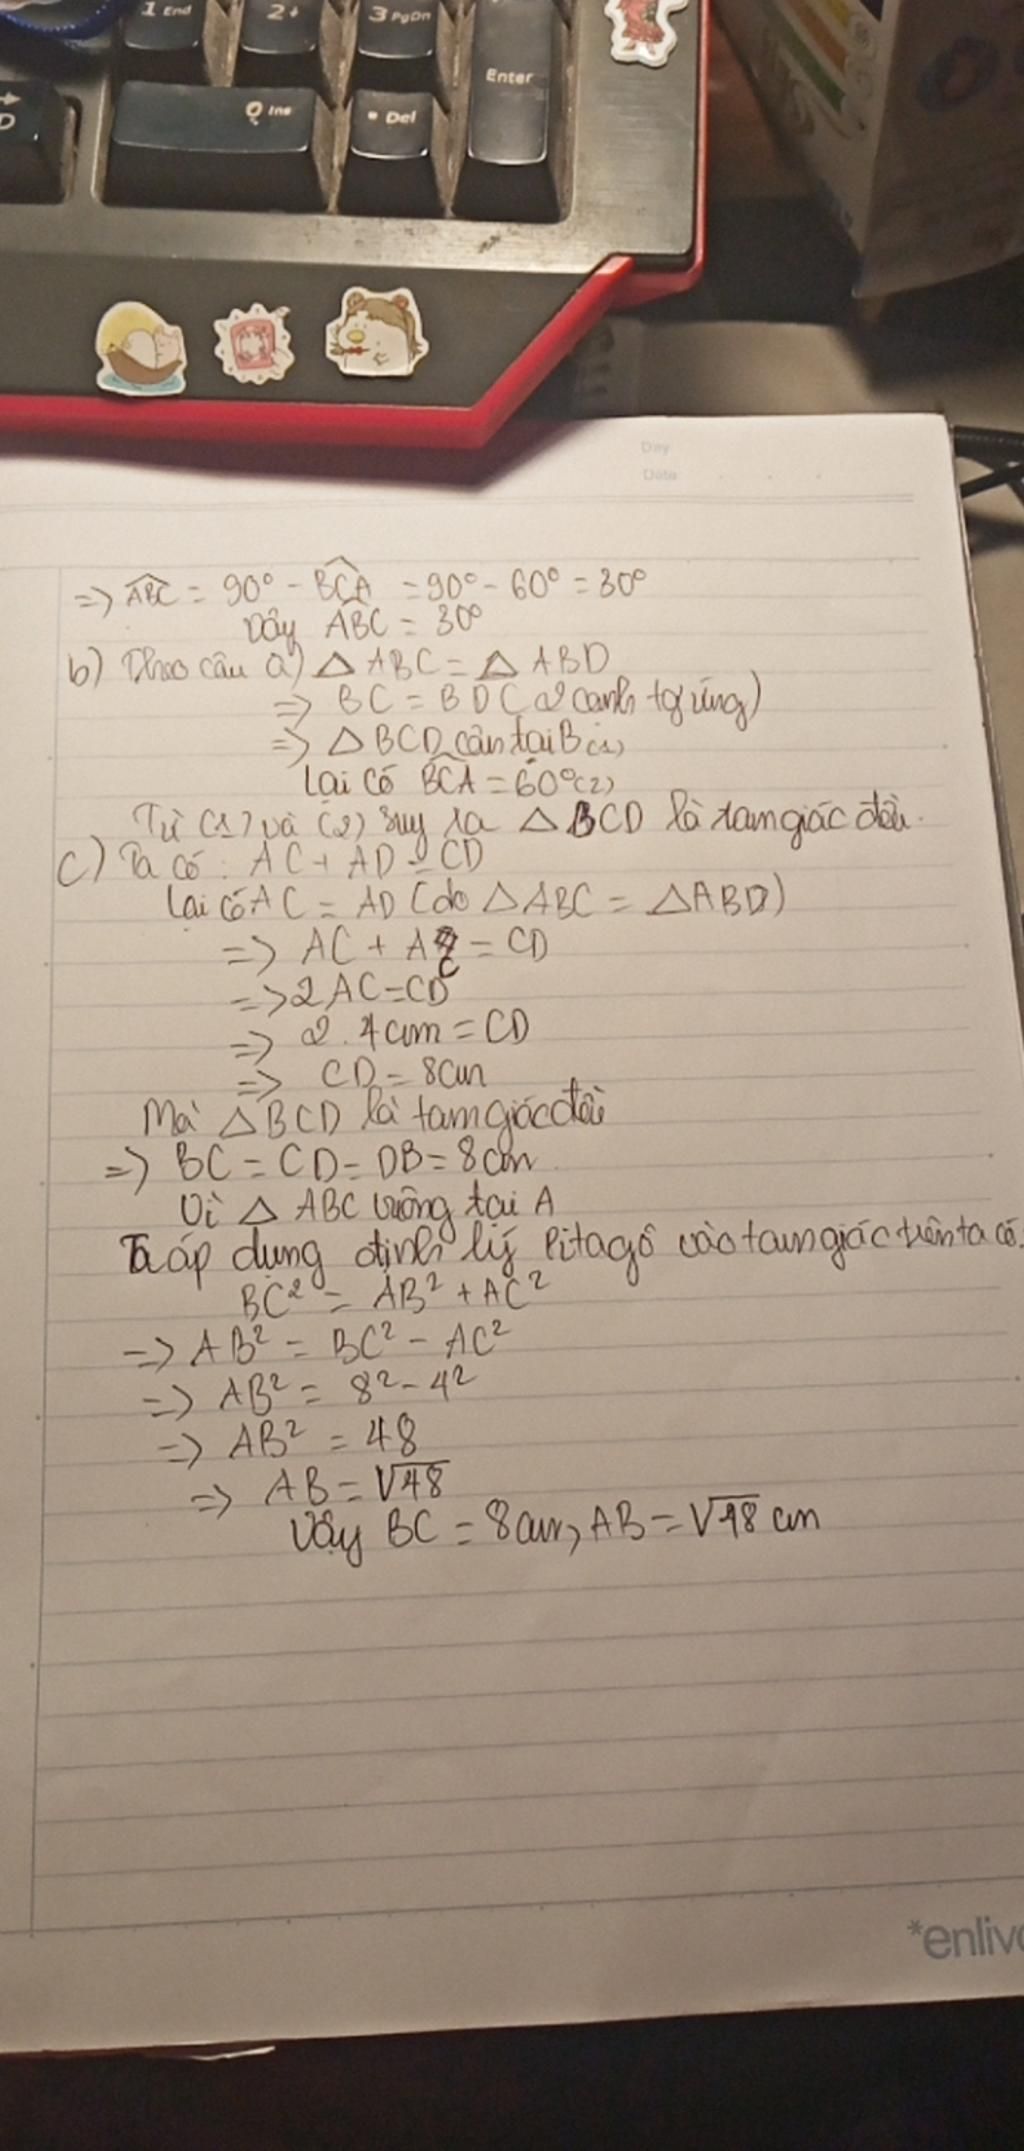 1 End
2↓
3 PgDn
Enter
D
0 Ins
• Del
Day
Date
=> ABC = 90° - BCA = 90° - 60° = 30°
Vậy ABC = 30°
b) Theo câu a) △ ABC = △ ABD
=> BC = BD ( 2 cạnh tg ứng)
=> △ BCD cân tại B (1)
Lại có BCA = 60° (2)
Từ (1) và (2) suy ra △ BCD là tam giác đều.
c) Ta có: AC + AD = CD
Lại có AC = AD (do △ ABC = △ ABD)
=> AC + AC = CD
=> 2 AC = CD
=> 2 . 4 cm = CD
=> CD = 8 cm
Mà △ BCD là tam giác đều
=> BC = CD = DB = 8 cm
Vì △ ABC vuông tại A
Ta áp dụng định lý Pitagô vào tam giác trên ta có.
BC² = AB² + AC²
=> AB² = BC² - AC²
=> AB² = 8² - 4²
=> AB² = 48
=> AB = √48
Vậy BC = 8 cm, AB = √48 cm
*enliv